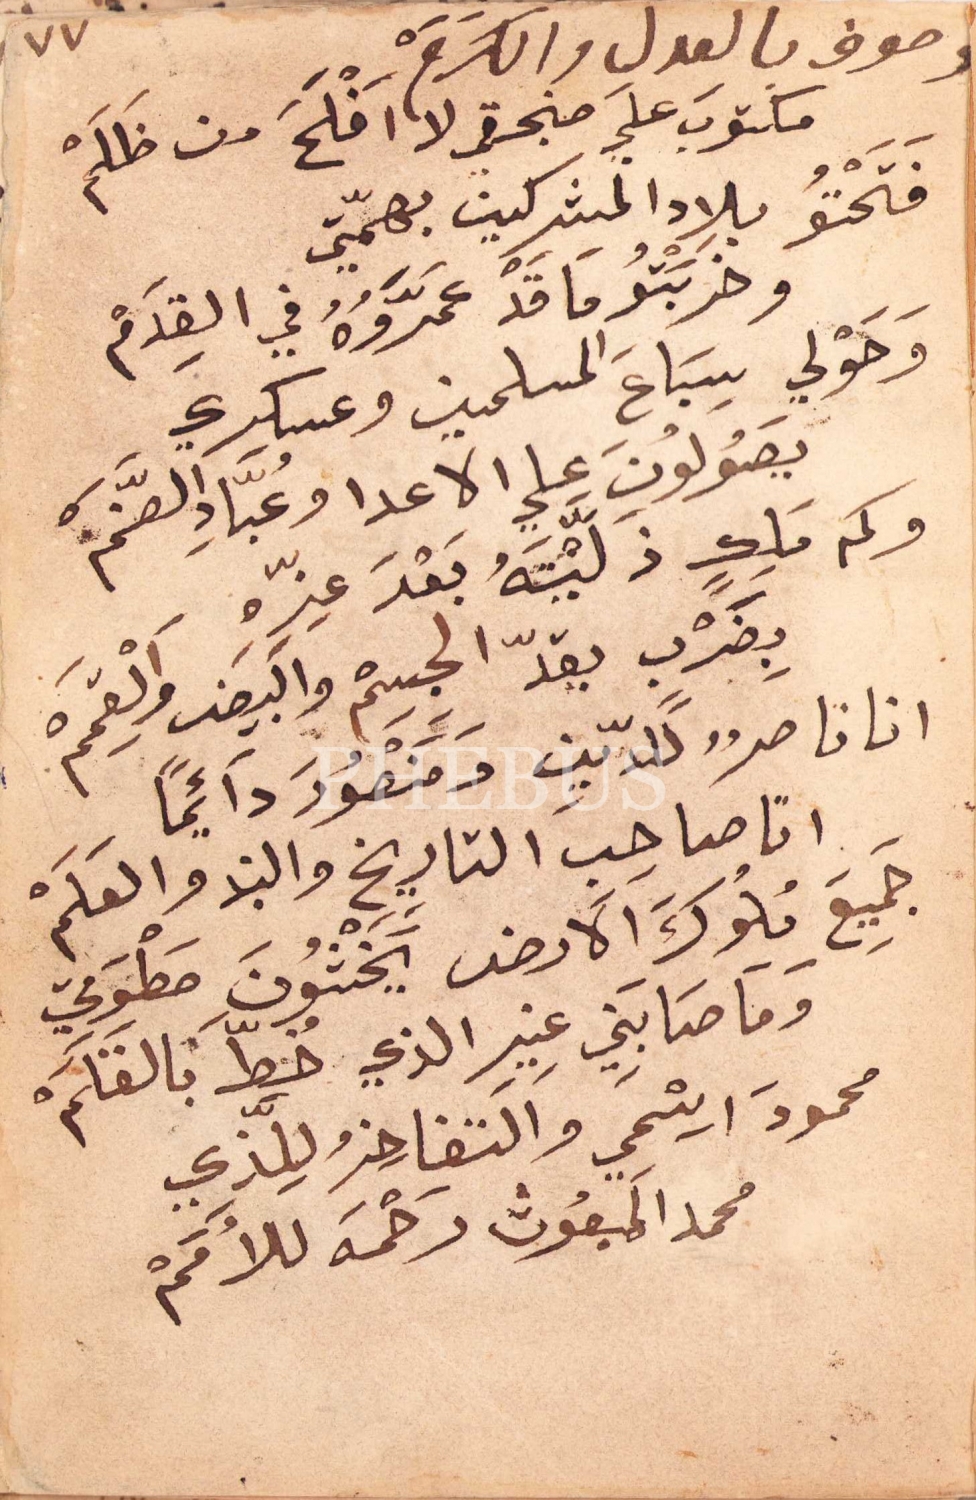 ٧٧
وصوف بالعدل والكَرَمْ
مكتوبَ علَي صنجقي لا اَفْلَحَ من ظَلَمْ
فَتَحْتُو بلاد المشركين بهمّتي
وخَرَبْتُو مَا قَدْ عمَرَّوُهُ في القِدَمْ
وَحَوْلي سِبَاعَ المسلمين وعسكري
يصَوُلوُنَ علي الاعدا وعُبَّادِ الصَّنَمْ
وكم مَلِكٍ ذَلَّيْتَهُ بَعْدَ عِزّهْ
بِضَرْبِ يقدّ الجِسِمْ والبيض والْقِمَمْ
انا ناصر للدّين وَمَنْصُورَ دَائِمًا
انا صاحِب التاريخ والبند والعَلَمْ
جَمِيعَ مُلُوكَ الارض يَخْشُونَ سَطْوَتي
وَمَا صَابَني غير الذي خُطّ بَالقَلَمْ
محمودَ اسْمي والتفاخرُ لِلَّذي
محمد المبعُوث رَحْمَه للاُمَمْ
PHEBUS